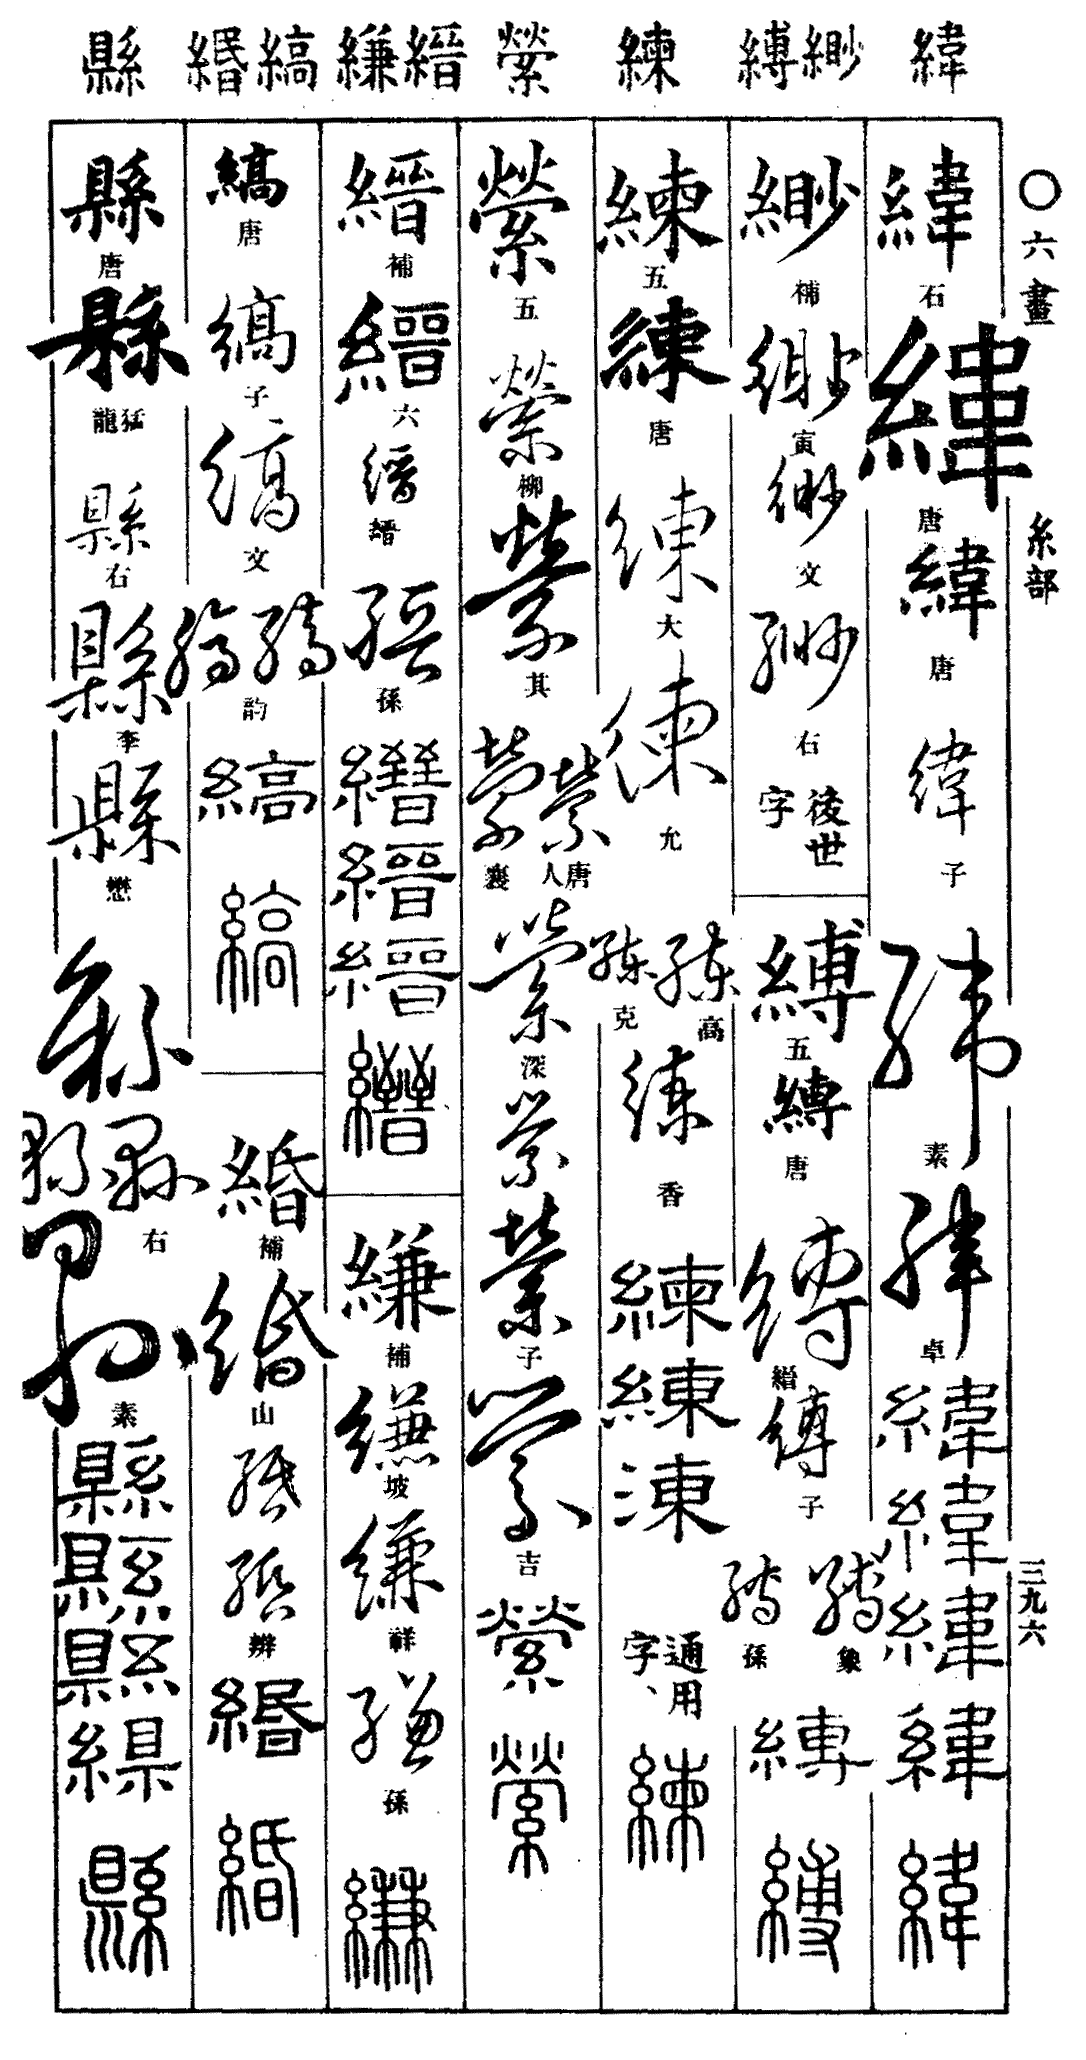 緯
緲 縛
練
縈
縉 縑
縞 緡
縣
〇六畫 糸部 三九六
緯 石
緯 唐
緯 唐
緯 子
緯 素
緯 卓
緯
緯
緯
緯
緯
緲 補
緲 寅
緲 文
緲 右
後世字
縛 五
縛 唐
縛 縉
縛 子
縛 象
縛 孫
縛
縛
練 五
練 唐
練 大
練 允
練 高
練 克
練 香
練
練
湅
通用字、
練
縈 五
縈 柳
縈 其
縈 唐人
縈 襄
縈 深
縈
縈 子
縈 吉
縈
縈
縉 補
縉 六
縉
縉 孫
縉
縉
縉
縉
縑 補
縑 坡
縑 祥
縑 孫
縑
縞 唐
縞 子
縞 文
縞 縞 韵
縞
縞
緡 補
緡 山
緡
緡 辨
緡
緡
縣 唐
縣 猛龍
縣 右
縣 李
縣 懋
縣
縣 縣 右
縣 素
縣
縣
縣
縣
縣